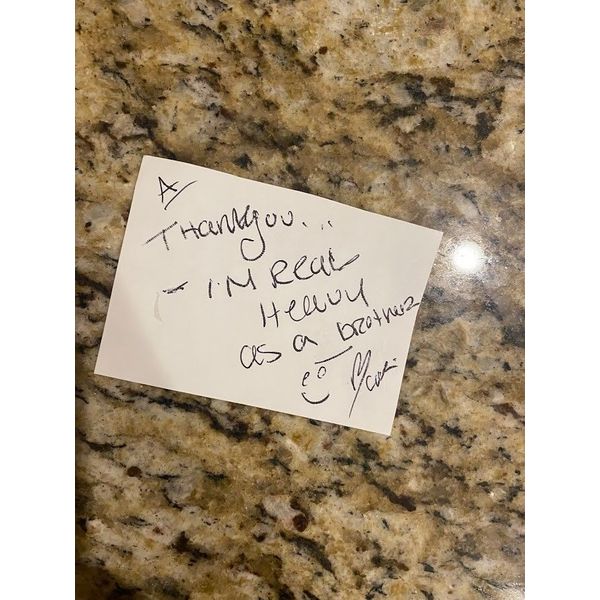 A/
Thankyou...
- I'M Real
Heavy
as a brother